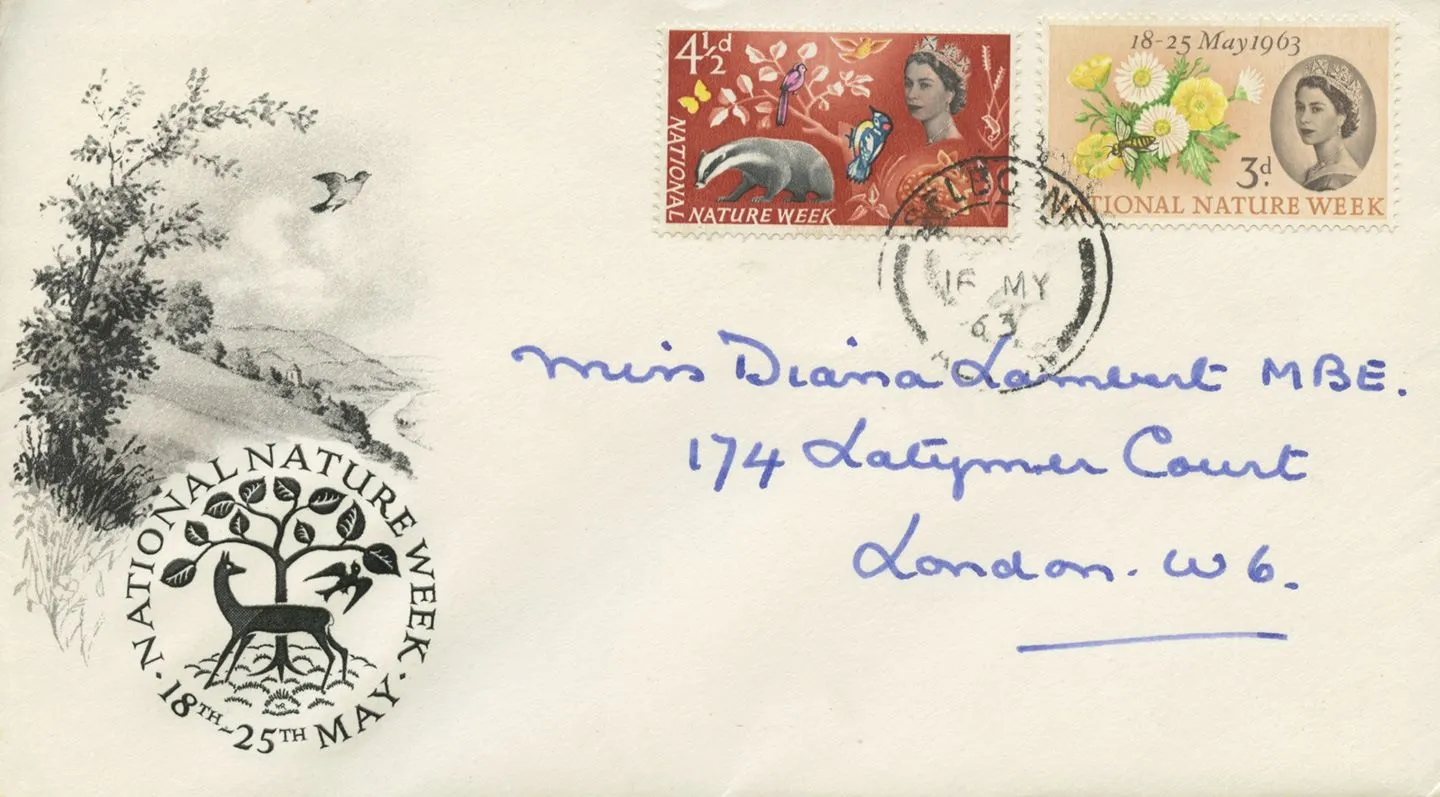 4½d
NATIONAL
NATURE WEEK
18-25 May 1963
3d.
NATIONAL NATURE WEEK
SELBORNE
MY
63
Miss Diana Lambert MBE.
174 Latymer Court
London. W6.
· NATIONAL NATURE WEEK ·
18TH-25TH MAY